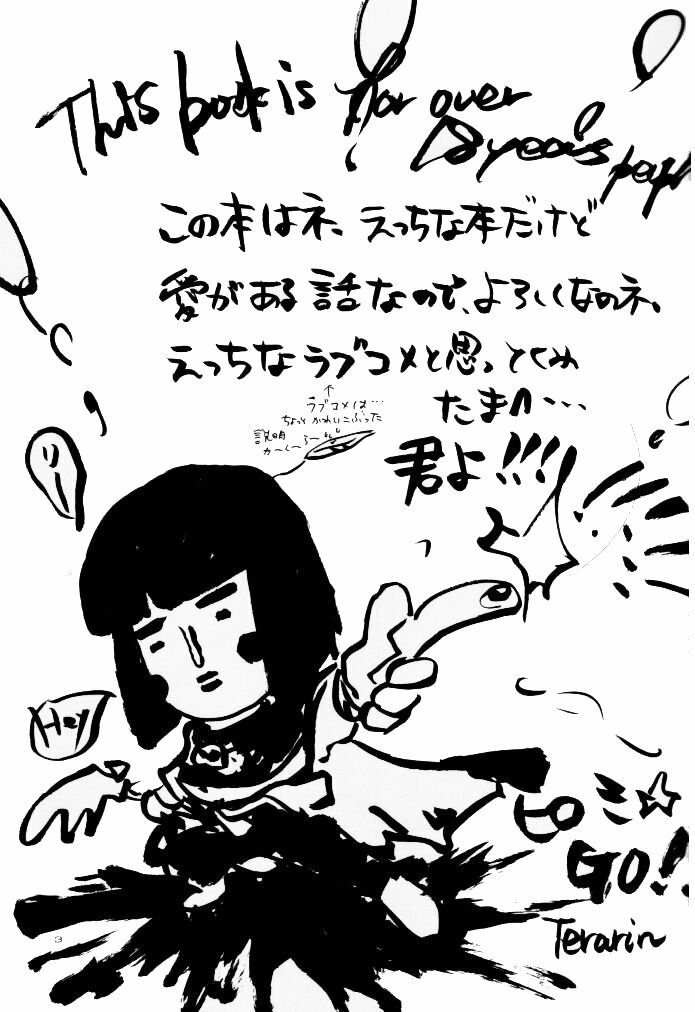 This book is for over
18 years people
この本はネ、えっちな本だけど
愛がある話なので、よろしくなのネ。
えっちなラブコメと思っとくみ
たまへ…
↑
ラブコメは…
ちょっとかわいこぶった
説明
か〜く〜る〜
君よ!!!
リー
Hey
ピロミ☆
GO!!
Terarin
3